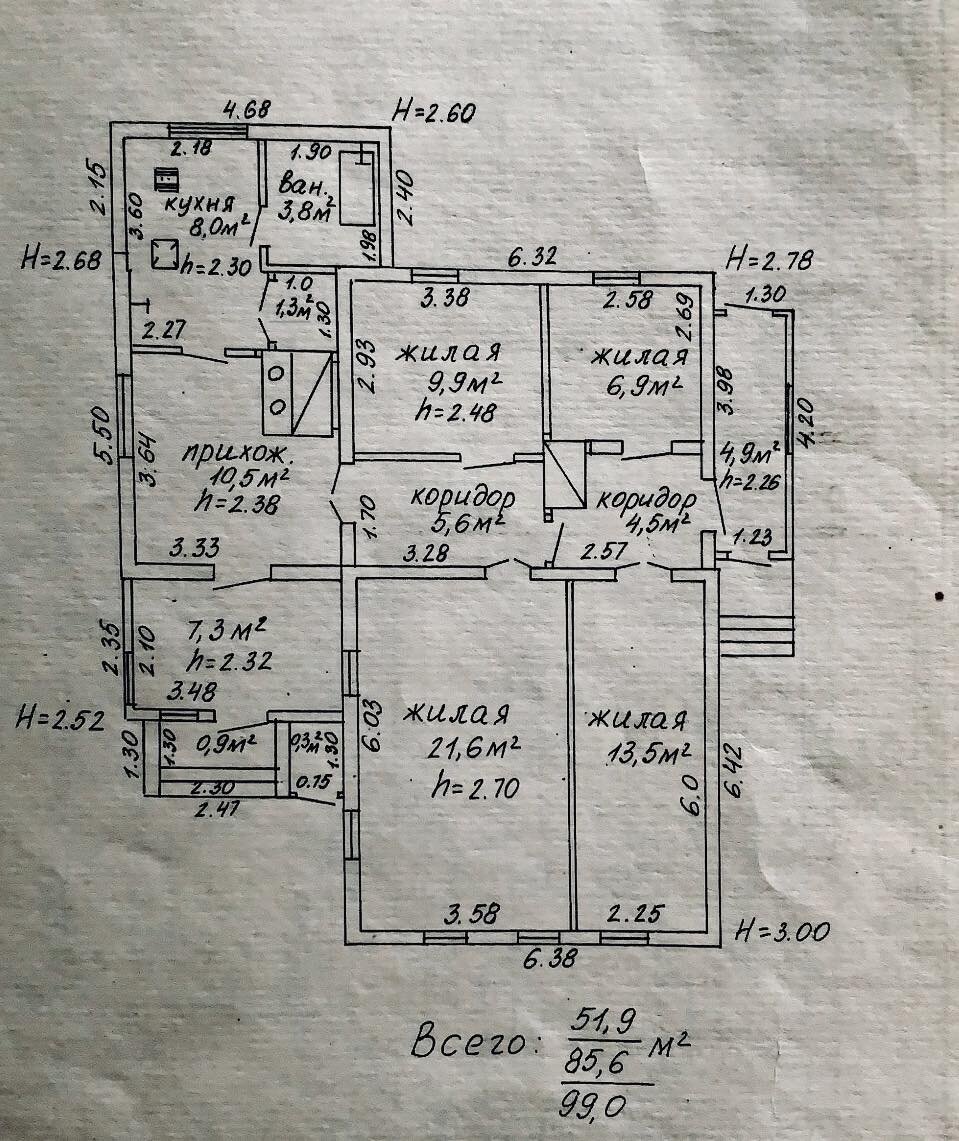 4.68
H=2.60
2.18
1.90
2.15
3.60
кухня
8,0м²
ван.
3,8м²
2.40
1.98
H=2.68
h=2.30
6.32
H=2.78
1.0
1,3м²
1.30
3.38
2.58
2.69
1.30
2.27
2.93
жилая
9,9м²
h=2.48
жилая
6,9м²
3.98
4.20
5.50
3.64
прихож.
10,5м²
h=2.38
4,9м²
h=2.26
коридор
5,6м²
коридор
4,5м²
1.70
3.33
3.28
2.57
1.23
2.35
2.10
7,3м²
h=2.32
3.48
H=2.52
1.30
1.30
0,9м²
0,3м²
1.30
0.75
2.30
2.47
6.03
жилая
21,6м²
h=2.70
жилая
13,5м²
6.0
6.42
3.58
2.25
H=3.00
6.38
Всего: 51,9
85,6 м²
99,0